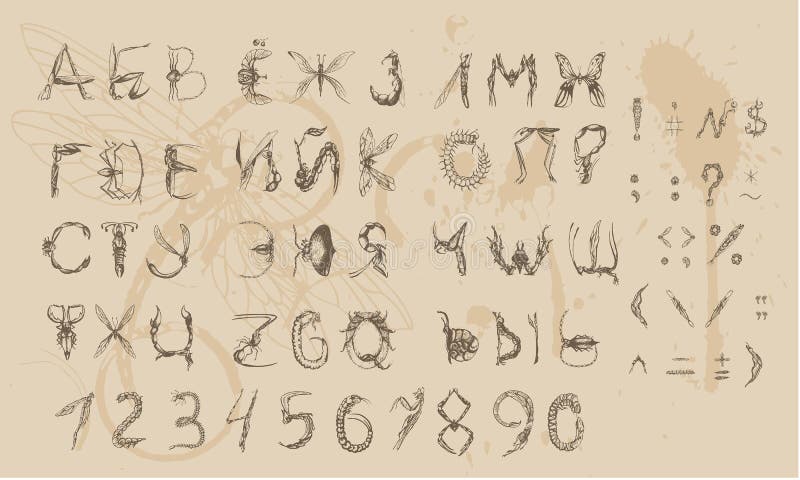 А Б В Ё Ж З Л М Х
Г Д Е И Й К О П Р
С Т У Э Ф Я Ч Ш Щ
Т Х Ц Z G Q Ъ Ы Ь
1 2 3 4 5 6 7 8 9 0
! № $
?
: ; %
( \ / "
^ _ = +